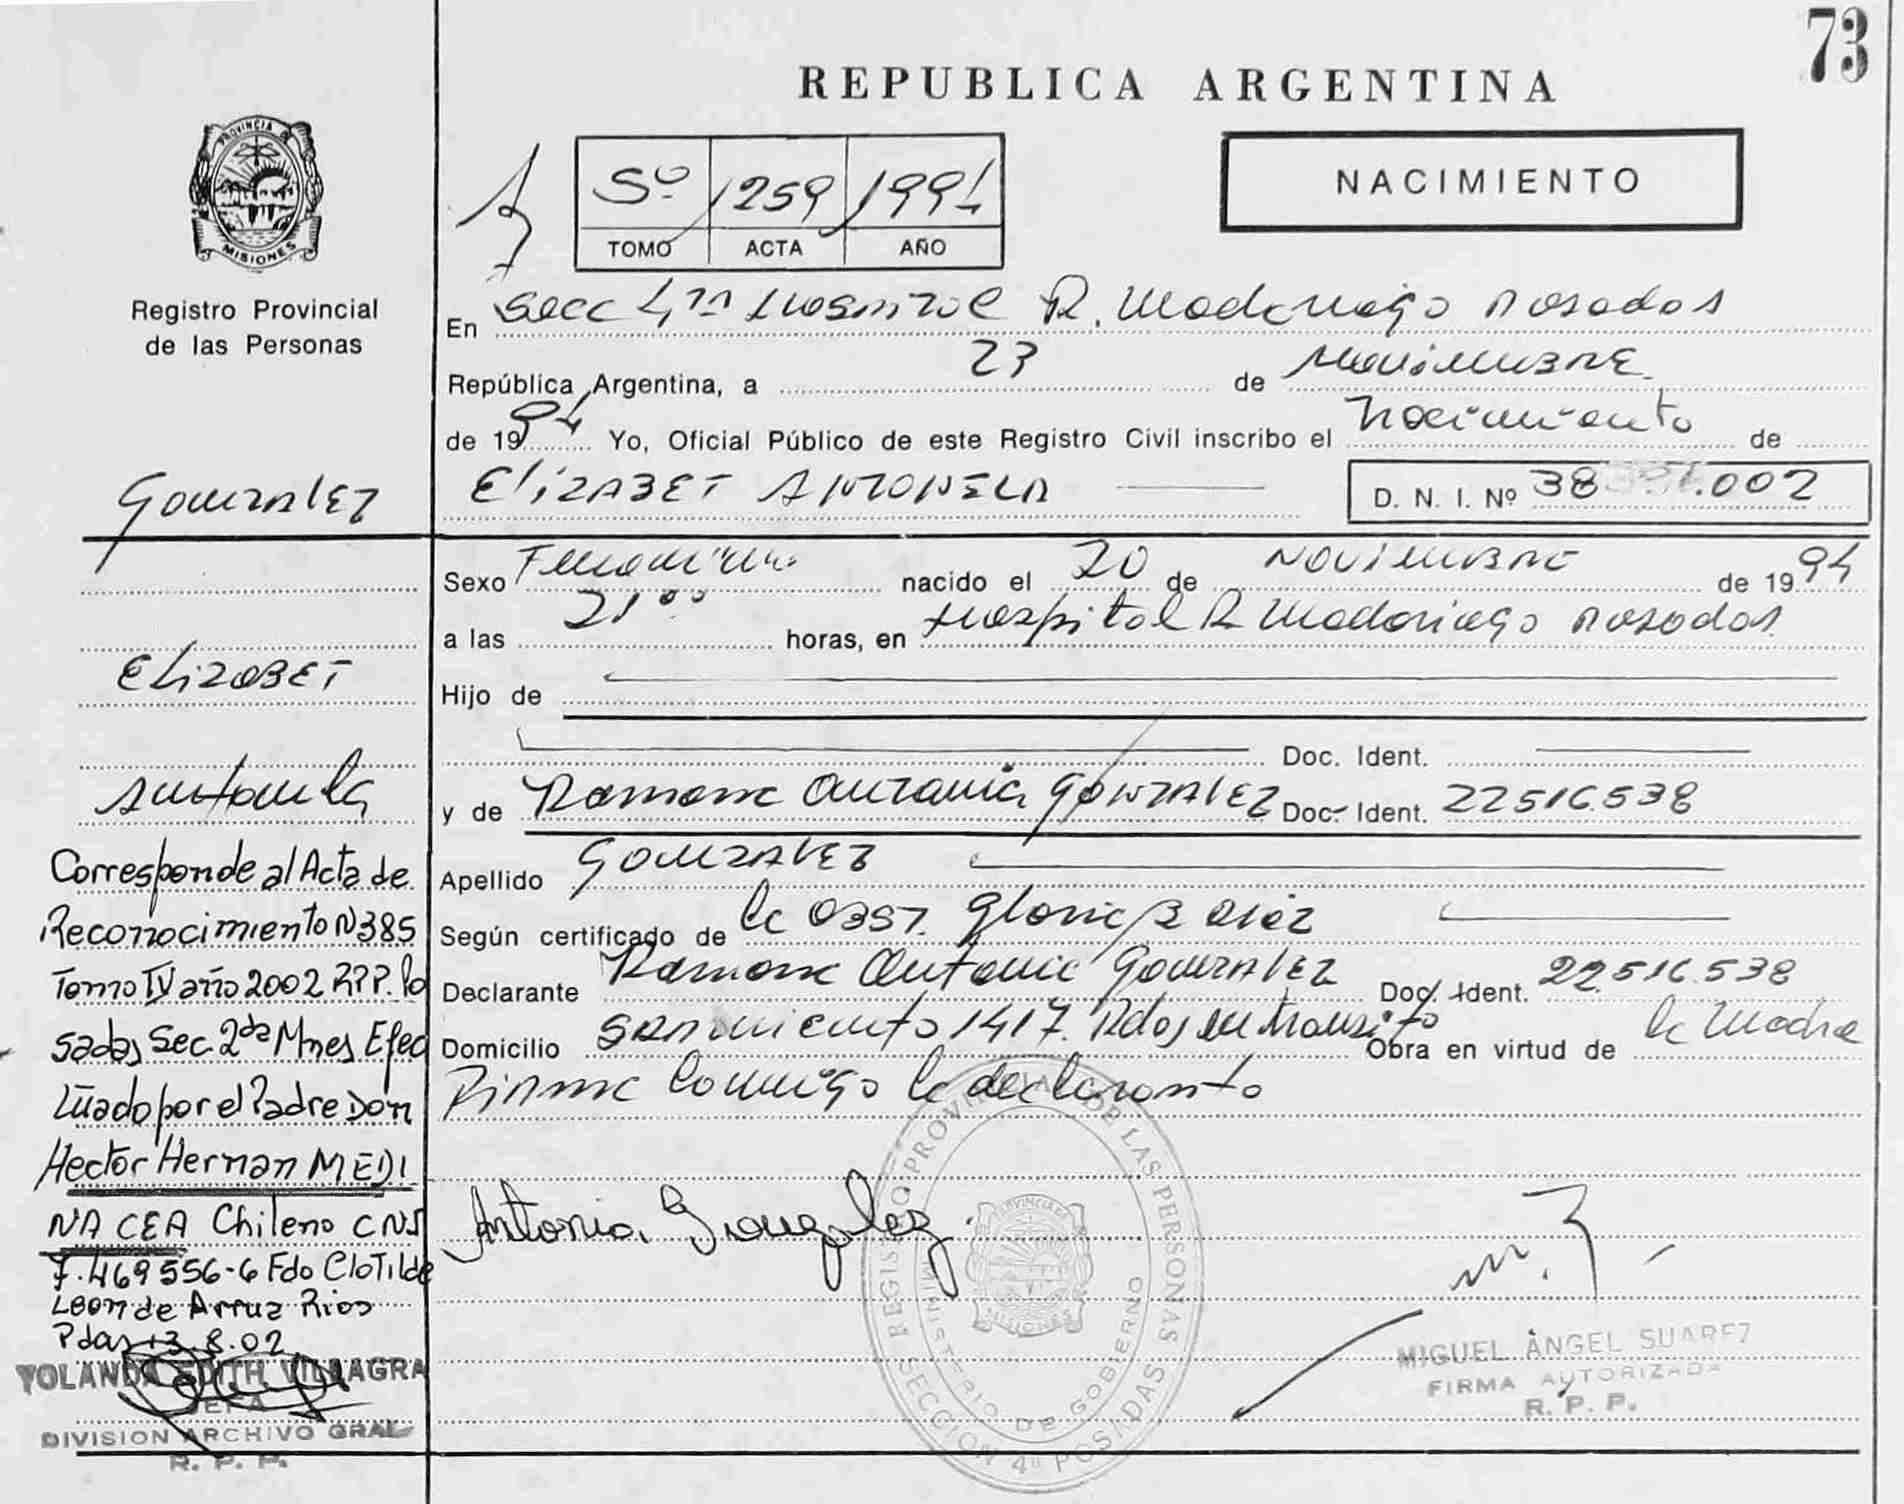 73
REPUBLICA ARGENTINA
PROVINCIA DE
MISIONES
Registro Provincial
de las Personas
Sº 1259 1994
TOMO ACTA AÑO
NACIMIENTO
En Secc 4ta Hospital R. Madariaga Posadas
República Argentina, a 23 de Noviembre
de 1994 Yo, Oficial Público de este Registro Civil inscribo el Nacimiento de
ELIZABET ANTONELA
D. N. I. Nº 38 .002
Sexo Femenino nacido el 20 de NOVIEMBRE de 1994
a las 21 00 horas, en Hospital R Madariaga Posadas
Hijo de
Doc. Ident.
y de Ramona Antonia GONZALEZ Doc. Ident. 22516.538
Apellido GONZALEZ
Según certificado de la OBST. Gloria B
Declarante Ramona Antonia GONZALEZ Doc. Ident. 22.516.538
Domicilio Sarmiento 1417. Pdas en transito Obra en virtud de la Madre
Firma Conmigo la declarante
Antonia Gonzalez
REGISTRO PROVINCIAL DE LAS PERSONAS
MINISTERIO DE GOBIERNO
PROVINCIA DE
MISIONES
SECCION 4ª POSADAS
MIGUEL ÁNGEL SUAREZ
FIRMA AUTORIZADA
R. P. P.
GONZALEZ
ELIZABET
Antonela
Corresponde al Acta de
Reconocimiento N385
Tomo IV año 2002 RPP. Po
sadas Sec. 2da Mnes Efec
tuado por el Padre Don
Hector Hernan MEDI
NA CEA Chileno CNI
7.469556-6 Fdo Clotilde
Leon de Arrua Rios
Pdas 13.8.02
YOLANDA EDITH VILLAGRA
JEFA
DIVISION ARCHIVO GRAL
R. P. P.